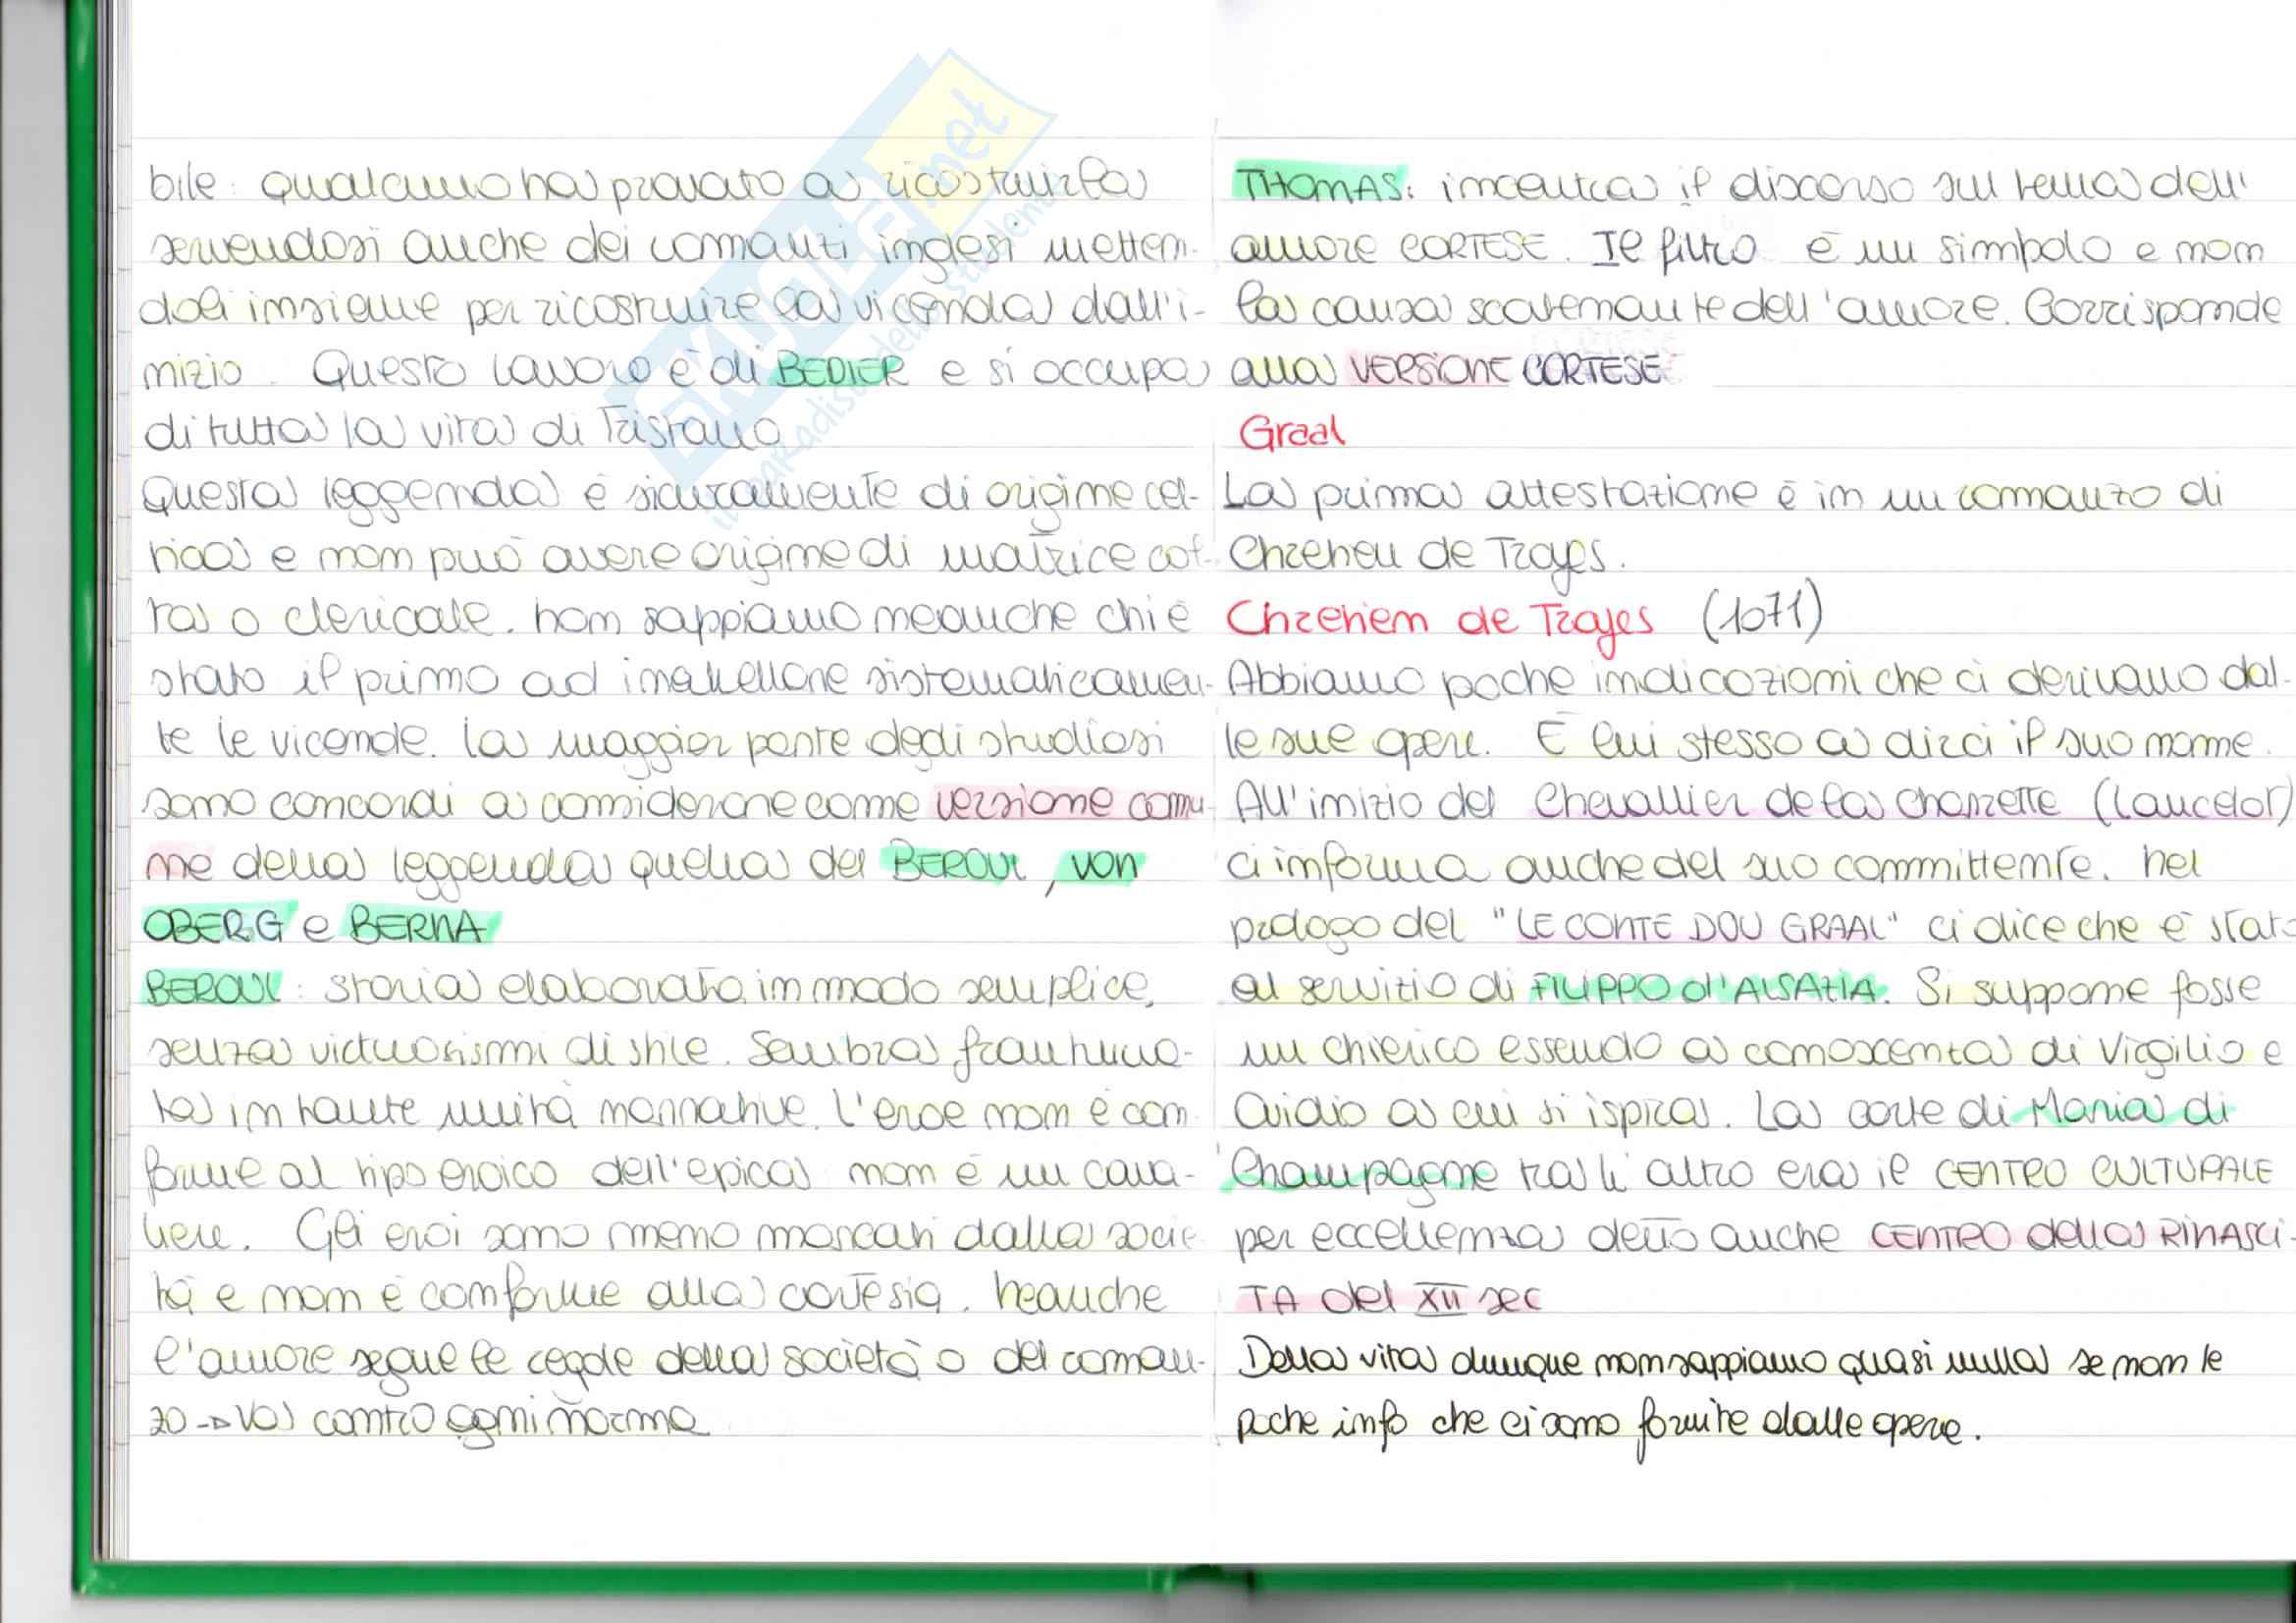 bile: qualcuno ha provato a ricostruirla
servendosi anche dei romanzi inglesi metten-
doli insieme per ricostruire la vicenda dall'i-
nizio. Questo lavoro è di BEDIER e si occupa
di tutta la vita di Tristano
Questa leggenda è sicuramente di origine cel-
tica e non può avere origine di matrice col-
ta o clericale. Non sappiamo neanche chi è
stato il primo ad inanellare sistematicamen-
te le vicende. La maggior parte degli studiosi
sono concordi a considerare come versione comu-
ne della leggenda quella del BEROUL, VON
OBERG e BERNA
BEROUL: storia elaborata in modo semplice,
senza virtuosismi di stile. Sembra frantuma-
ta in tante unità narrative. L'eroe non è con
forme al tipo eroico dell'epica non è un cava-
liere. Gli eroi sono meno marcati dalla socie
tà e non è conforme alla cortesia. Neanche
l'amore segue le regole della società o del roman-
zo → va contro ogni norma
THOMAS: incentra il discorso sul tema dell'
amore CORTESE. Il filtro è un simbolo e non
la causa scatenante dell'amore. Corrisponde
alla VERSIONE CORTESE
Graal
La prima attestazione è in un romanzo di
Chretien de Troyes.
Chretien de Troyes (1071)
Abbiamo poche indicazioni che ci derivano dal-
le sue opere. È lui stesso a dirci il suo nome.
All'inizio del Chevallier de la Charrette (Lancelot)
ci informa anche del suo committente. Nel
prologo del "LE CONTE DOU GRAAL" ci dice che è stato
al servizio di FILIPPO d'ALSAZIA. Si suppone fosse
un chierico essendo a conoscenza di Virgilio e
Ovidio a cui si ispira. La corte di Maria di
Champagne tra l'altro era il CENTRO CULTURALE
per eccellenza detto anche CENTRO della RINASCI-
TA del XII sec
Della vita dunque non sappiamo quasi nulla se non le
poche info che ci sono fornite dalle opere.
SKUOLA.net
il paradiso dello studente